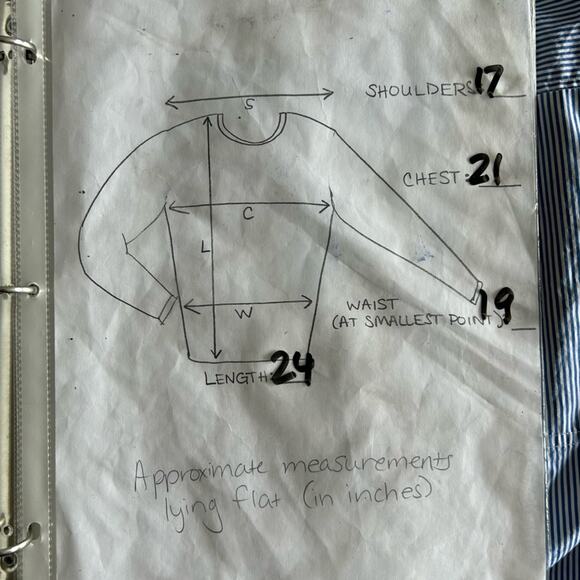 S
SHOULDERS 17
CHEST: 21
C
L
W
WAIST
(AT SMALLEST POINT) 19
LENGTH: 24
Approximate measurements
lying flat (in inches)